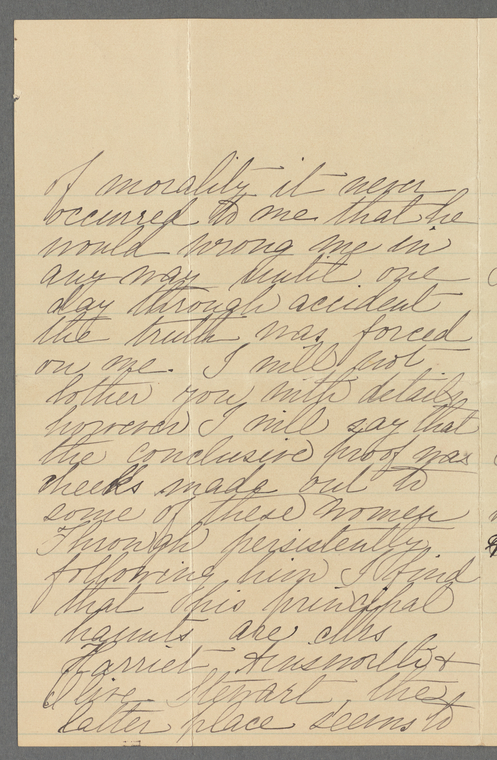 of morality it never
occurred to me that he
would wrong me in
any way until one
day through accident
the truth was forced
on me. I will not
bother you with details
however I will say that
the conclusive proof was
checks made out to
some of these women
Through persistently
following him I find
that his principal
haunts are Mrs
Harriet Ainsworth's +
Olive Stewart, the
latter place seems to